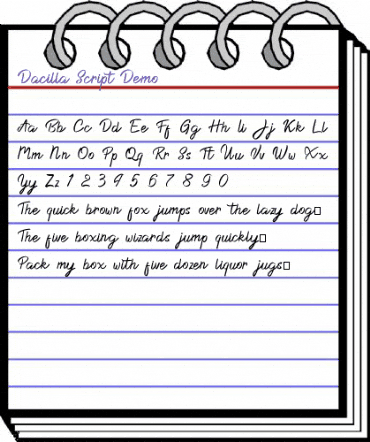 Dacilla Script Demo
Aa Bb Cc Dd Ee Ff Gg Hh Ii Jj Kk Ll
Mm Nn Oo Pp Qq Rr Ss Tt Uu Vv Ww Xx
Yy Zz 1 2 3 4 5 6 7 8 9 0
The quick brown fox jumps over the lazy dog□
The five boxing wizards jump quickly□
Pack my box with five dozen liquor jugs□